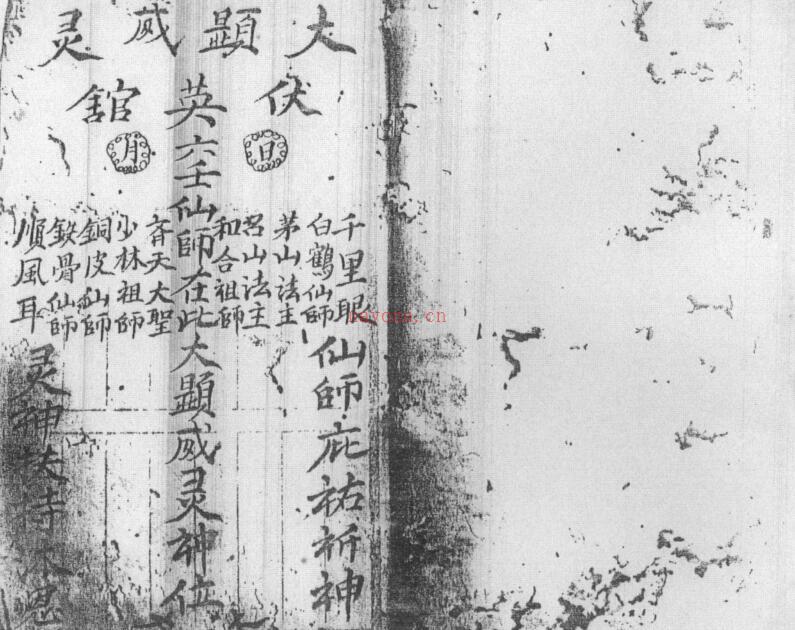 大顯威灵
伏英舘
日
月
千里眼
白鶴仙師
茅山法主
呂山法主
和合祖師
英六壬仙師在此大顯威灵神位
斉天大聖
少林祖師
銅皮仙師
鉄骨仙師
順風耳
仙師庇祐祈神
灵神扶侍沐恩
nayona.cn